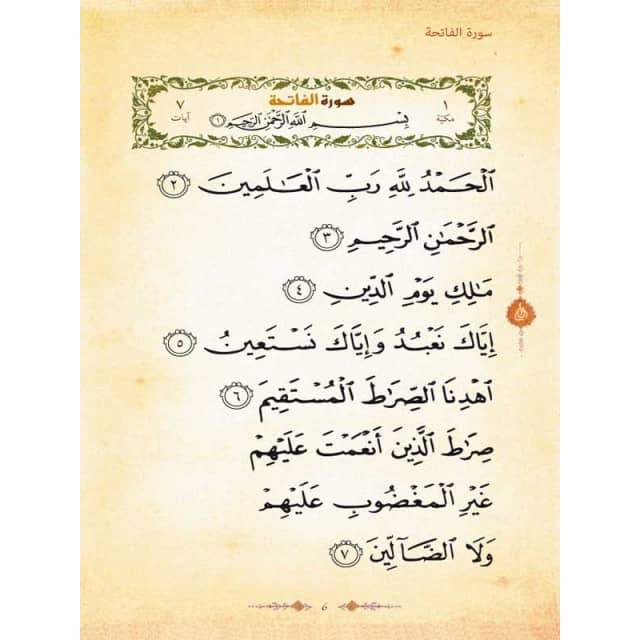 سورة الفاتحة
سورة الفاتحة
١ مكية
٧ آيات
بِسْمِ ٱللَّهِ ٱلرَّحْمَٰنِ ٱلرَّحِيمِ ١
ٱلْحَمْدُ لِلَّهِ رَبِّ ٱلْعَٰلَمِينَ ٢
ٱلرَّحْمَٰنِ ٱلرَّحِيمِ ٣
مَٰلِكِ يَوْمِ ٱلدِّينِ ٤
إِيَّاكَ نَعْبُدُ وَإِيَّاكَ نَسْتَعِينُ ٥
ٱهْدِنَا ٱلصِّرَٰطَ ٱلْمُسْتَقِيمَ ٦
صِرَٰطَ ٱلَّذِينَ أَنْعَمْتَ عَلَيْهِمْ
غَيْرِ ٱلْمَغْضُوبِ عَلَيْهِمْ
وَلَا ٱلضَّآلِّينَ ٧